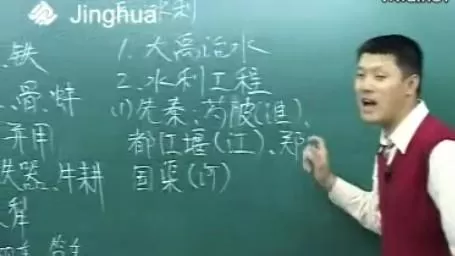 Jinghua
水利
铁
1. 大禹治水
骨、蚌
2. 水利工程
并用
(1) 先秦:芍陂(淮)、
都江堰(江)、郑
铁器、牛耕
国渠(河)
犁